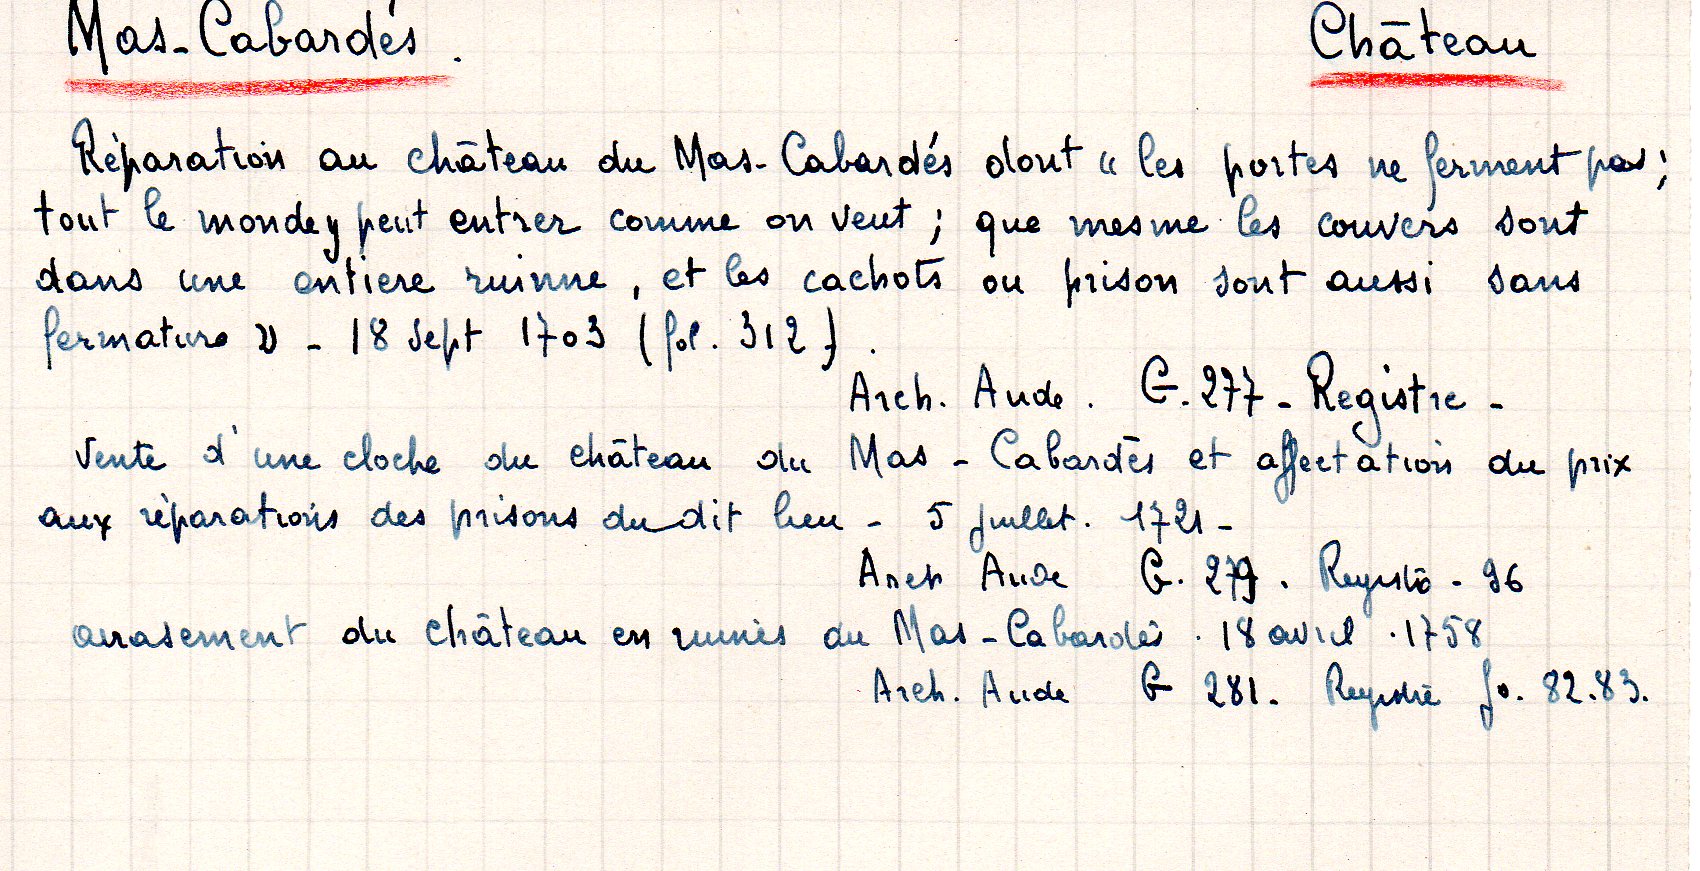 Mas-Cabardés. Château
Réparation au château du Mas-Cabardés dont " les portes ne ferment pas ;
tout le monde y peut entrer comme on veut ; que mesme les couvers sont
dans une entiere ruinne, et les cachots ou prison sont aussi sans
fermature » - 18 sept 1703 (fol. 312).
Arch. Aude. G. 277 - Registre -
Vente d'une cloche du château du Mas-Cabardès et affectation du prix
aux réparations des prisons du dit lieu - 5 juillet. 1721 -
Arch Aude G. 279. Registre - 96
arrasement du château en ruines du Mas-Cabardés. 18 avril. 1758
Arch. Aude G 281. Registre fo. 82.83.